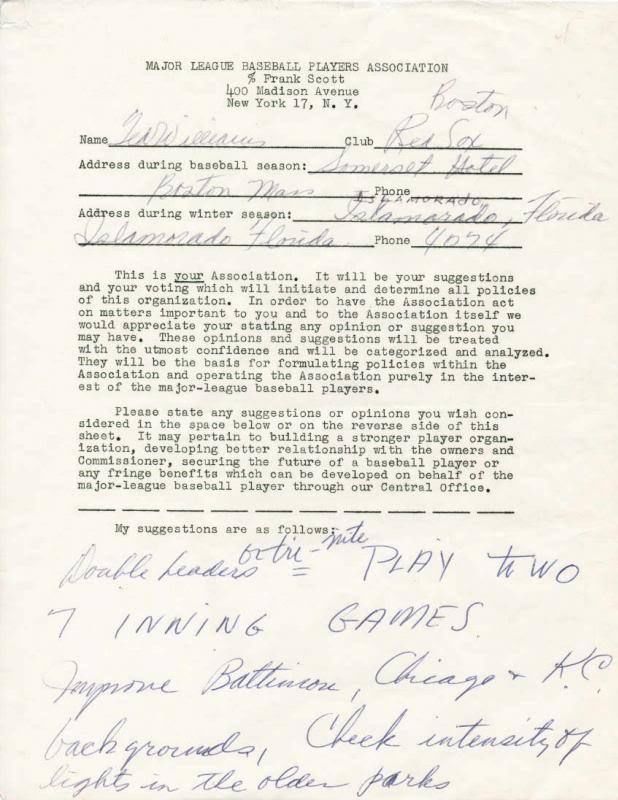 MAJOR LEAGUE BASEBALL PLAYERS ASSOCIATION
% Frank Scott
400 Madison Avenue
New York 17, N. Y.
Boston
Name Ted Williams Club Red Sox
Address during baseball season: Somerset Hotel
Boston Mass Phone
ISLAMORADO
Address during winter season: Islamorado, Florida
Islamorado Florida Phone 4074
This is your Association. It will be your suggestions
and your voting which will initiate and determine all policies
of this organization. In order to have the Association act
on matters important to you and to the Association itself we
would appreciate your stating any opinion or suggestion you
may have. These opinions and suggestions will be treated
with the utmost confidence and will be categorized and analyzed.
They will be the basis for formulating policies within the
Association and operating the Association purely in the inter-
est of the major-league baseball players.
Please state any suggestions or opinions you wish con-
sidered in the space below or on the reverse side of this
sheet. It may pertain to building a stronger player organ-
ization, developing better relationship with the owners and
Commissioner, securing the future of a baseball player or
any fringe benefits which can be developed on behalf of the
major-league baseball player through our Central Office.
My suggestions are as follows:
Double headers or tri-nite = PLAY TWO
7 INNING GAMES
Improve Baltimore, Chicago + K.C.
backgrounds, Check intensity of
lights in the older parks